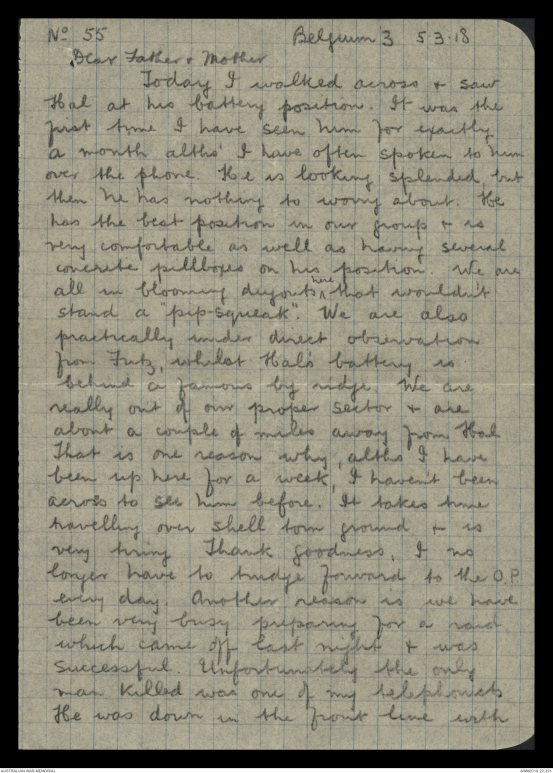 No 55 Belgium 3 5.3.18
Dear Father & Mother
Today I walked across & saw
Hal at his battery position. It was the
first time I have seen him for exactly
a month altho' I have often spoken to him
over the phone. He is looking splended but
then he has nothing to worry about. He
has the best position in our group & is
very comfortable as well as having several
concrete pillboxes on his position. We are
all in blooming dugouts here that wouldn't
stand a "pip-squeak". We are also
practically under direct observation
from Fritz, whilst Hal's battery is
behind a famous big ridge. We are
really out of our proper sector & are
about a couple of miles away from Hal
That is one reason why, altho I have
been up here for a week, I haven't been
across to see him before. It takes time
travelling over shell torn ground & is
very tiring Thank goodness, I no
longer have to trudge forward to the O.P.
every day. Another reason is we have
been very busy preparing for a raid
which came off last night & was
successful. Unfortunately the only
man killed was one of my telephonists
He was down in the front line with
AUSTRALIAN WAR MEMORIAL